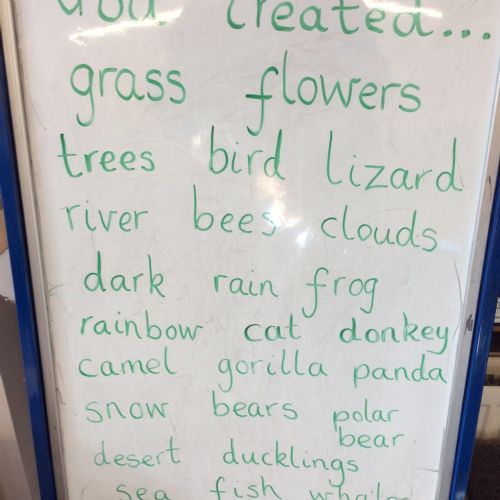 God created...
grass flowers
trees bird lizard
river bees clouds
dark rain frog
rainbow cat donkey
camel gorilla panda
snow bears polar bear
desert ducklings
sea fish whale